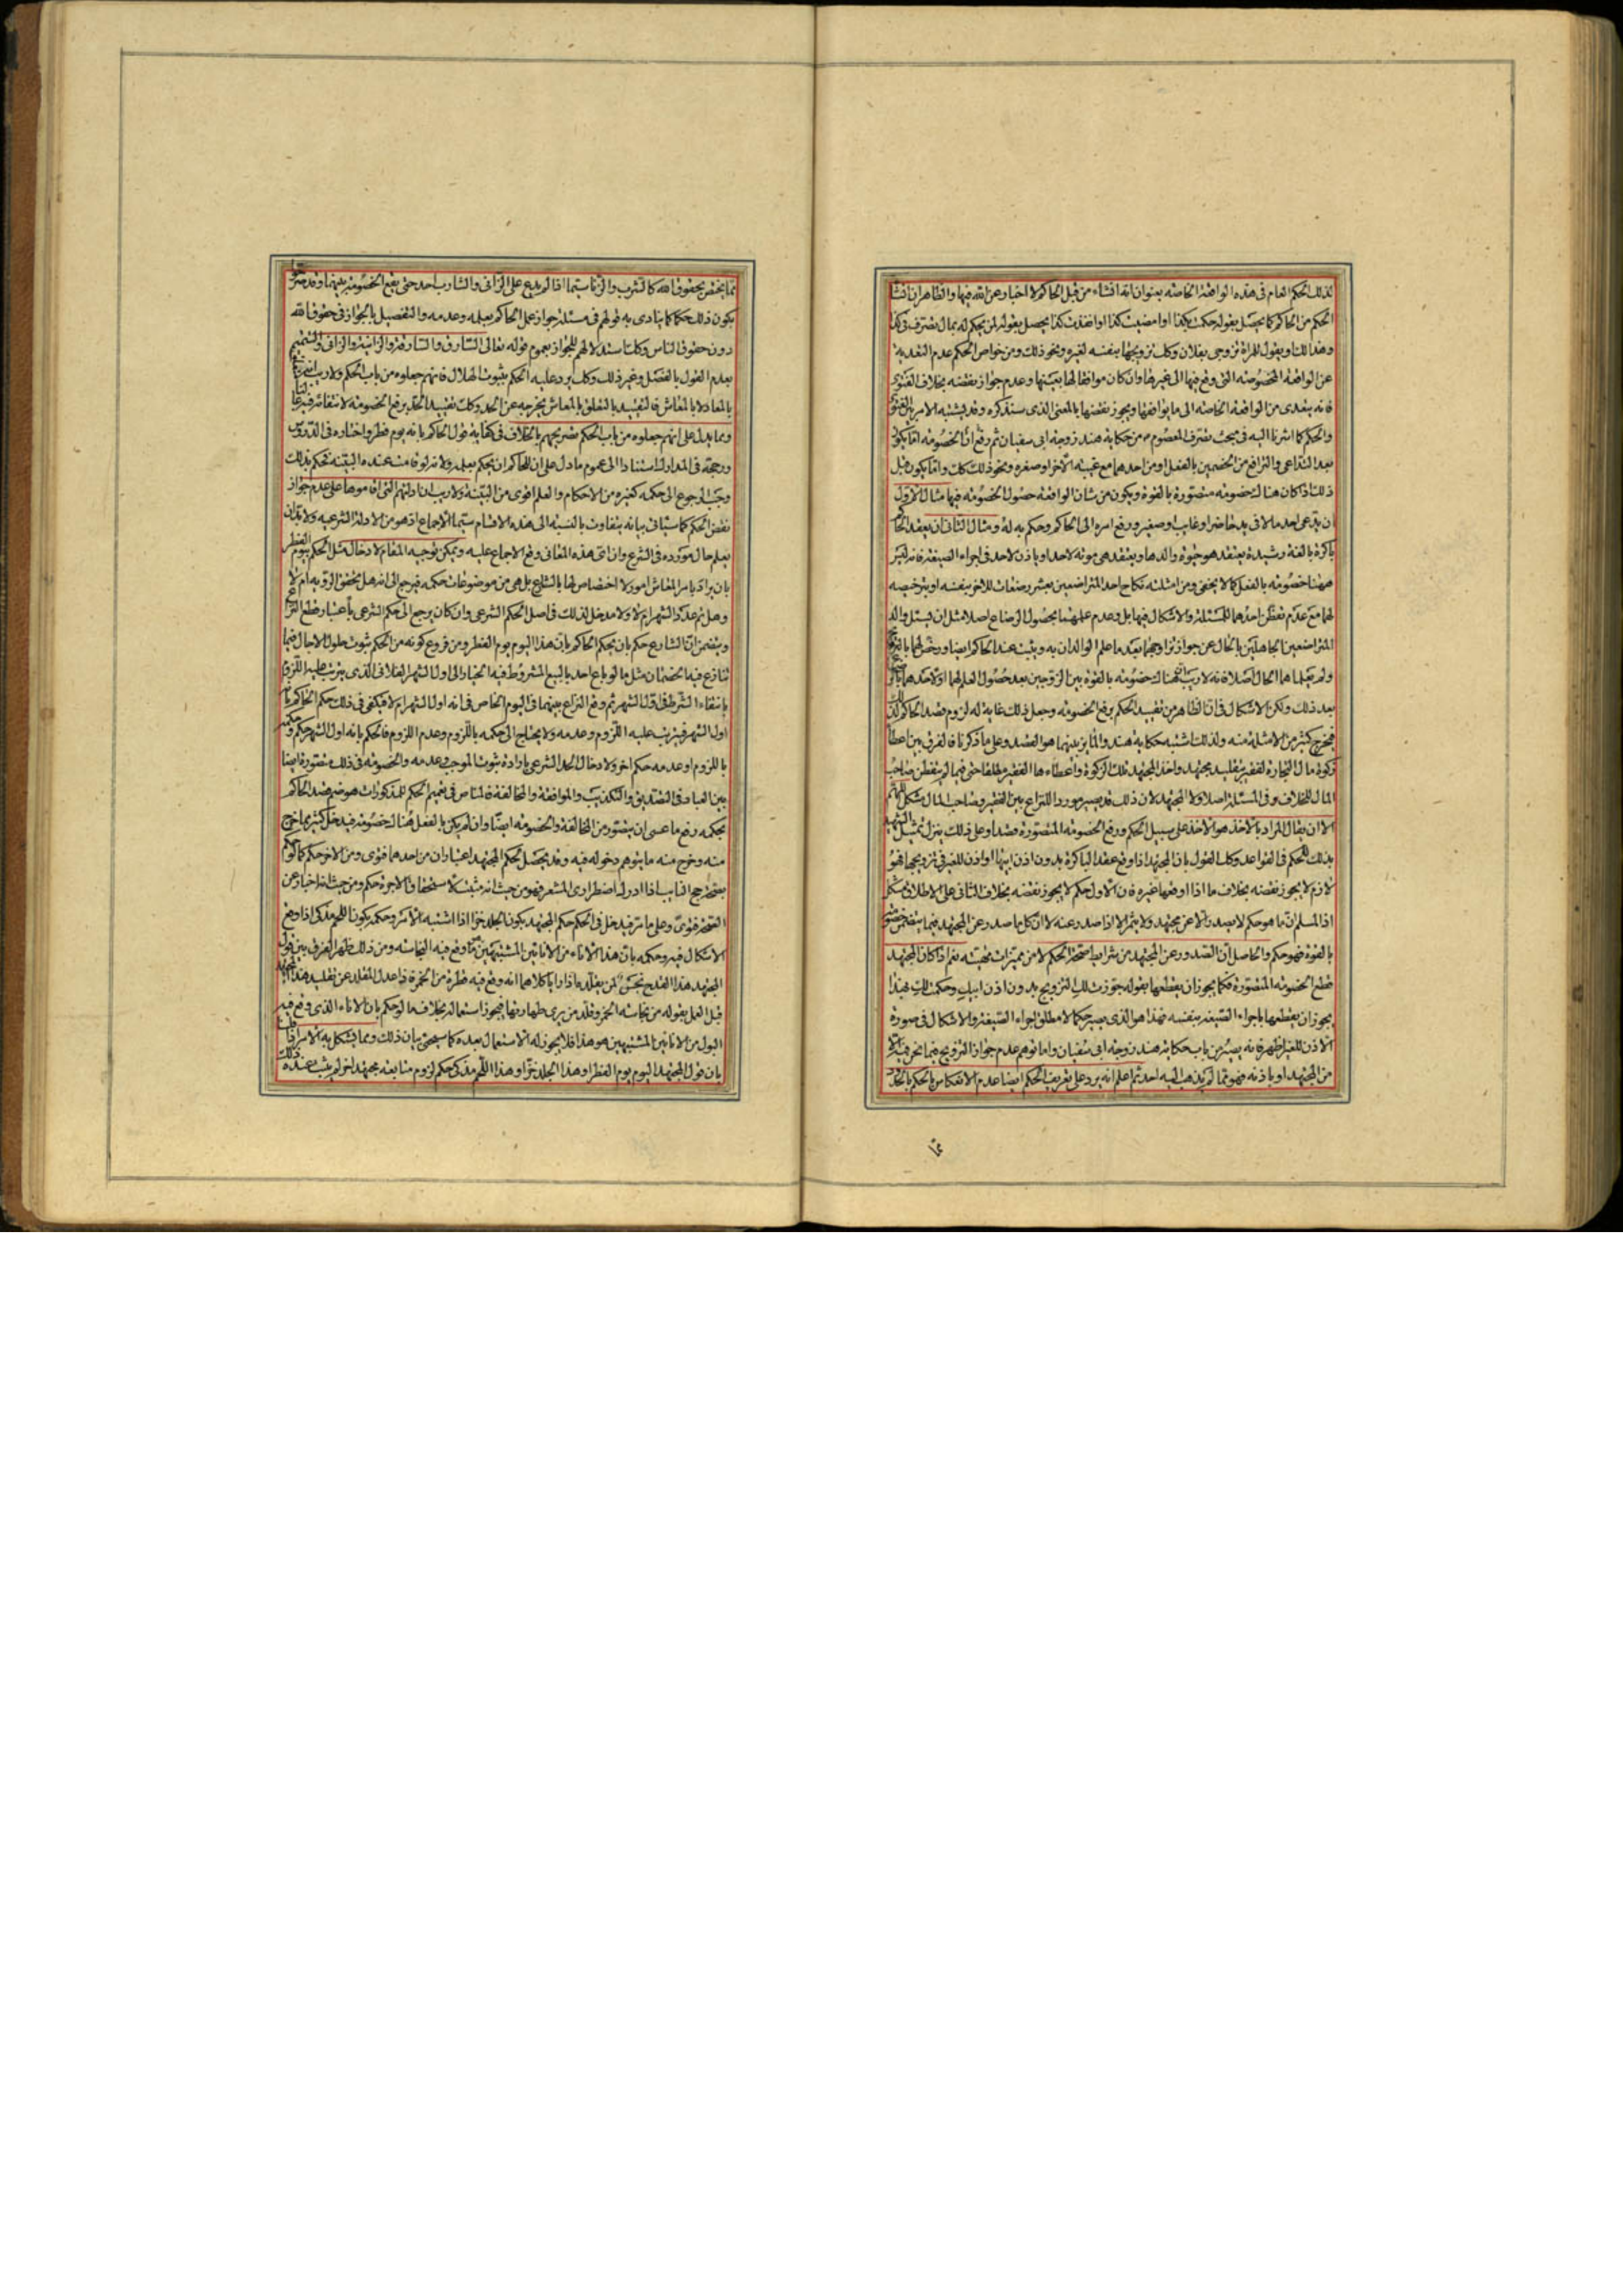 لذلك الحكم العام فى هذه الواقعة الخاصة بعنوان انه انشاء من قبل الحاكم لا اخبار عن الله فيها والظاهر ان انشاء
الحكم من الحاكم كما يحصل بقوله حكمت بكذا او امضيت كذا او انفذت كذا يحصل بقوله لمن يحكم له بمال تصرف فى كذا
وهذا لك او يقول للمراة تزوجى بفلان وكك تزويجها بنفسه لغيره ونحو ذلك ومن خواص الحكم عدم التعدية
عن الواقعة المخصوصة التى وقع فيها الى غيرها وان كان موافقا لها بعينها وعدم جواز نقضه بخلاف الفتوى
فانه يتعدى من الواقعة الخاصة الى ما يوافقها ويجوز نقضها بالمعنى الذى سنذكره وقد يشتبه الامر بين الفتوى
والحكم كما اشرنا اليه فى مبحث تصرف المعصوم من حكاية هند زوجة ابى سفيان ثم رفع الخصومة اما يكون
بعد التداعى والترافع من الخصمين بالفعل او من احدهما مع غيبة الآخر او صغره ونحو ذلك واما يكون قبل
ذلك اذا كان هناك خصومة متصورة بالقوة ويكون من شان الواقعة حصول الخصومة فيها مثال الاول
ان يدعى احد مالا فى يد حاضر او غايب او صغير ورفع امره الى الحاكم وحكم به له ومثال الثانى ان يعقد الحاكم
باكرة بالغة رشيدة يعتقد هو حيوة والدها ويعتقد هى موته لاحد او ياذن لاحد فى اجراء الصيغة فانه ليس
ههنا خصومة بالفعل كما لا يخفى ومن امثلته نكاح احد المتراضعين بعشر رضعات للاخر بنفسه او بترخيصه
لهما مع عدم تفطن احدهما للمسئلة والاشكال فيها بل وعدم علمهما بحصول الرضاع اصلا مثل ان يسئل والد
المتراضعين الجاهلين بالحال عن جواز تزاوجهما بعد ما علم الوالدان به ويثبت عند الحاكم ايضا ورخص لهما بالتزويج
ولم يعلما هما الحال اصلا فانه لا ريب ان هناك خصومة بالقوة بين الزوجين بعد حصول العلم لهما او لاحدهما
بعد ذلك ولكن الاشكال فى ان الظاهر من تقييد الحكم برفع الخصومة وجعل ذلك غاية له لزوم قصد الحاكم لذلك
فيخرج كثير من الامثلة منه ولذلك اشتبه حكاية هند والمايز بينهما هو القصد وعلى ما ذكرنا فالفرق بين اعطاء
زكوة مال التجارة لفقير بتقليد مجتهد واخذ المجتهد تلك الزكوة واعطاءها الفقير مطلقا حتى فيما لم يتفطن صاحب
المال للخلاف فى المسئلة اصلا ولا المجتهد لان ذلك قد يصير موردا للنزاع بين الفقير وصاحب المال مشكل اللهم
الا ان يقال المراد بالاخذ هو الاخذ على سبيل الحكم ورفع الخصومة المتصورة قصدا وعلى ذلك ينزل تمثيل الشهيد
بذلك للحكم فى القواعد وكك القول بان المجتهد اذا اوقع عقد الباكرة بدون اذن ابيها او اذن للغير فى تزويجها فهو
لازم لا يجوز نقضه بخلاف ما اذا اوقعها غيره فان الاول حكم لا يجوز نقضه بخلاف الثانى على الاطلاق مشكل
اذ المسلم ان ما هو حكم لا يصدر الا عن مجتهد ولا يثمر الا اذا صدر عنه لا ان كل ما صدر عن المجتهد فيما يتضمن خصومة
بالقوة فهو حكم والحاصل ان الصدور عن المجتهد من شرايط صحة الحكم لا من مميزات مهيته نعم اذا كان المجتهد
قطع الخصومة المتصورة فكما يجوز ان يقطعها بقوله جوزت لك التزويج بدون اذن ابيك وحكمت لك فهذا
يجوز ان يقطعها باجراء الصيغة بنفسه فهذا هو الذى يصير حكما لا مطلق اجراء الصيغة والاشكال فى صورة
الاذن للغير اظهر فانه يصير من باب حكاية هند زوجة ابى سفيان واما توهم عدم جواز التزويج فيما نحن فيه الا
من المجتهد او باذنه فهو مما لم يذهب اليه احد ثم اعلم انه يرد على تعريف الحكم ايضا عدم الانعكاس بالحكم بالحدود
مما يختص بحقوق الله كالشرب والزنا سيما اذا لم يدع على الزانى والشارب احد حتى يقع الخصومة بينهما وقد صرحوا
بكون ذلك حكما كما ينادى به قولهم فى مسئلة جواز عمل الحاكم بعلمه وعدمه والتفصيل بالجواز فى حقوق الله
دون حقوق الناس وكك استدلالهم للجواز بعموم قوله تعالى السارق والسارقة والزانية والزانى والتتميم
بعدم القول بالفصل وغير ذلك وكك يرد عليه الحكم بثبوت الهلال فانهم جعلوه من باب الحكم ولا ريب
بالمعاد لا بالمعاش فالتقييد بالتعلق بالمعاش يخرجه عن الحد وكك تقييد الحد برفع الخصومة لانتفائه فيه غالبا
ومما يدل على انهم جعلوه من باب الحكم تصريحهم بالخلاف فى كفاية قول الحاكم بانه يوم فطر واختاره فى الدروس
ورجحه فى المدارك استنادا الى عموم ما دل على ان للحاكم ان يحكم بعلمه ولانه لو قامت عنده البينة فحكم بذلك
وجب الرجوع الى حكمه كغيره من الاحكام والعلم اقوى من البينة ولا ريب ان ادلتهم التى اقاموها على عدم جواز
نقض الحكم كما سياتى بيانه يتفاوت بالنسبة الى هذه الاقسام سيما الاجماع اذ هو من الادلة الشرعية ولا بد ان
يعلم حال موروده فى الشرع وان اى هذه المعانى وقع الاجماع عليه ويمكن توجيه المقام لادخال مثل الحكم بيوم الفطر
بان يراد بامر المعاش امور لا اختصاص لها بالشارع بل هى من موضوعات حكمه فيرجع الى انه هل تحقق الرؤية ام لا
وهل تم عدد الشهر ام لا ولا مدخل لذلك فى اصل الحكم الشرعى وان كان يرجع الى حكم الشرعى باعتبار قطع النزاع
ويتضمن ان الشارع حكم بان يحكم الحاكم بان هذا اليوم يوم الفطر ومن فروع كونه من الحكم ثبوت حلول الاجال فيما
تنازع فيه الخصمان مثل ما لو باع احد بالبيع المشروط فيه الخيار الى اول الشهر الفلانى الذى يترتب عليه اللزوم
بانتفاء الشرط فى اول الشهر ثم وقع النزاع بينهما فى اليوم الخاص فى انه اول الشهر ام لا فيكفى فى ذلك حكم الحاكم بانه
اول الشهر فيترتب عليه اللزوم وعدمه ولا يحتاج الى حكمه باللزوم وعدم اللزوم فالحكم بانه اول الشهر حكم وحكمه
باللزوم او عدمه حكم اخر ولادخال الحد الشرعى بارادة ثبوت الموجب وعدمه والخصومة فى ذلك متصورة ايضا
بين العباد فى التصديق والتكذيب والموافقة والمخالفة فالمناص فى تعميم الحكم للمذكورات هو ضم قصد الحاكم
بحكمه رفع ما عسى ان يتصور من المخالفة والخصومة ايضا وان لم يكن بالفعل هناك خصومة فيدخل كثير مما خرج
منه وخرج منه ما يتوهم دخوله فيه وقد يحصل لحكم المجتهد اعتباران من احدهما فتوى ومن الاخر حكم كما لو حكم
بصحة حج النايب اذا ادرك اضطرارى المشعر فهو من حيث انه مثبت لاستحقاق الاجرة حكم ومن حيث انه اخبار عن
الصحة فتوى وعلى ما مر فيدخل فى الحكم حكم المجتهد بكون الجلد خزا اذا اشتبه الامر وحكمه بكون اللحم مذكى اذا وقع
الاشكال فيه وحكمه بان هذا الاناء من الانائين المشتبهين مما وقع فيه النجاسة ومن ذلك ظهر الفرق بين قول
المجتهد هذا القدح نجس لمن يقلده اذا رايا كلاهما انه وقع فيه قطرة من الخمر فاذا عدل المقلد عن تقليد هذا المجتهد
قبل العمل بقوله من نجاسة الخمر وقلد من يرى طهارتها فيجوز استعماله بخلاف ما لو حكم بان الاناء الذى وقع فيه
البول من الانائين المشتبهين هو هذا فلا يجوز له الاستعمال بعده كما سيجئ بيان ذلك ومما يشكل به الامر
بان قول المجتهد اليوم يوم الفطر او هذا الجلد خز او هذا اللحم مذكى حكم لزوم متابعة مجتهد اخر لم يثبت عنده ذلك